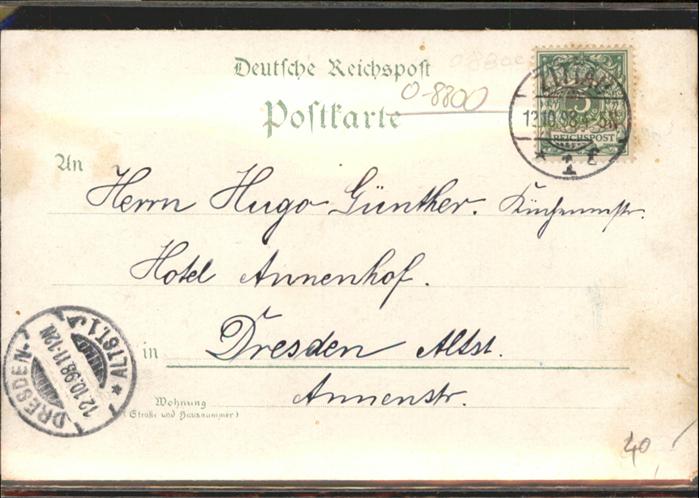 Deutsche Reichspost
0-8800
Postkarte
ZITTAU
5
REICHSPOST
1
An
Herrn Hugo Günther. Küchenmstr.
Hotel Annenhof.
in Dresden Altst.
Annenstr.
Wohnung
(Straße und Hausnummer)
DRESDEN-ALTST. 1
12.10.98. 11-12N
40